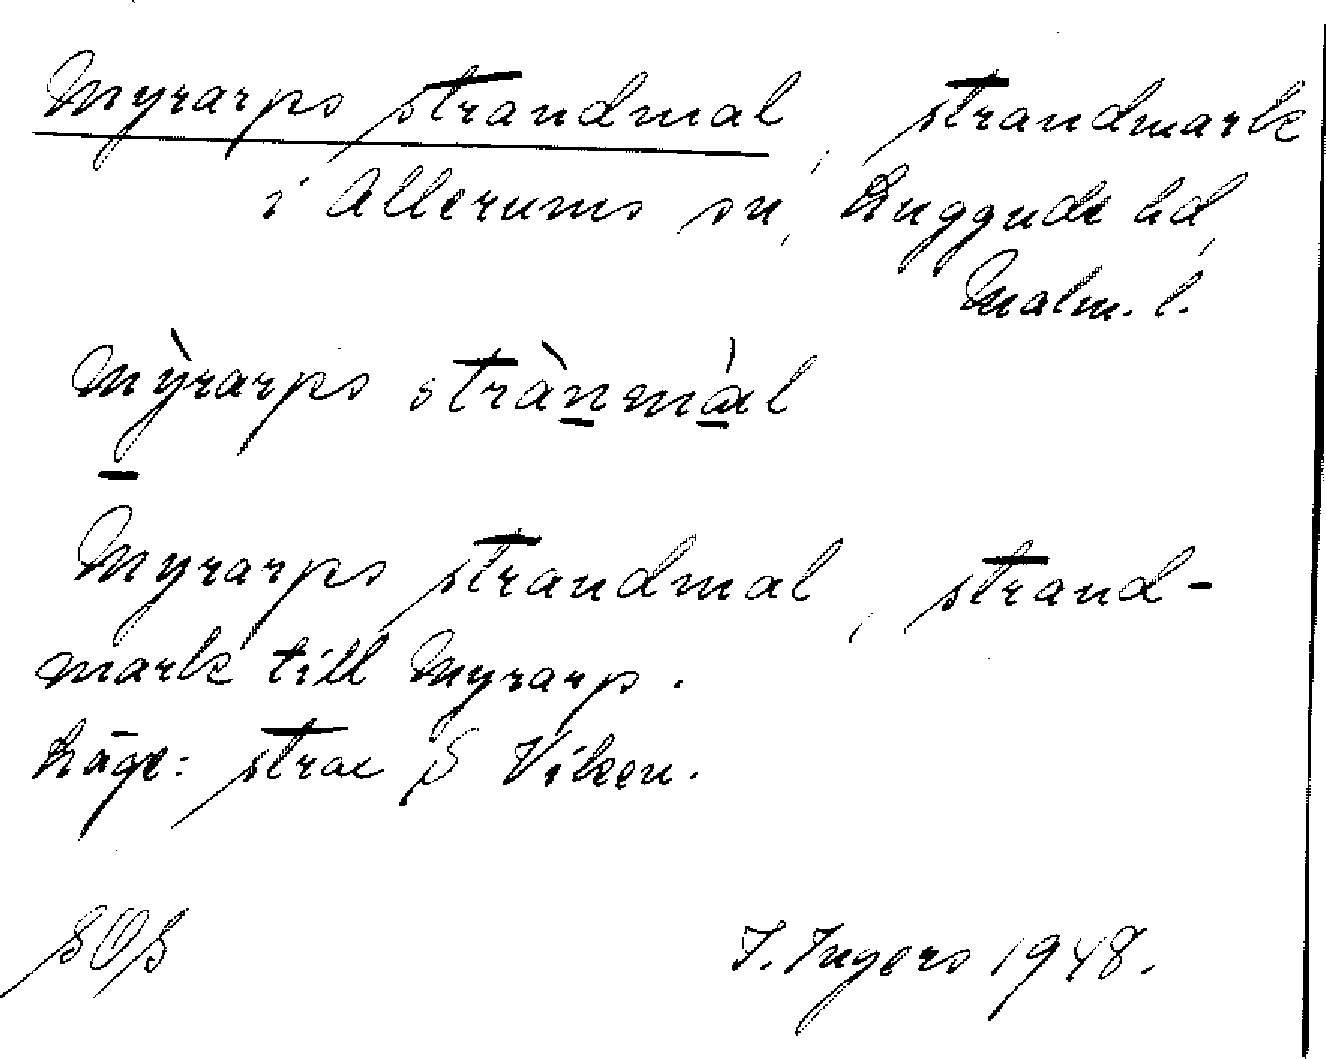 Myrarps strandmal, strandmark
i Allerums sn, Luggude hd,
Malm. l.
mỳrarps strànmàl
Myrarps strandmal, strand-
mark till Myrarp.
Läge: strax S Viken.
SOS I. Ingers 1948.